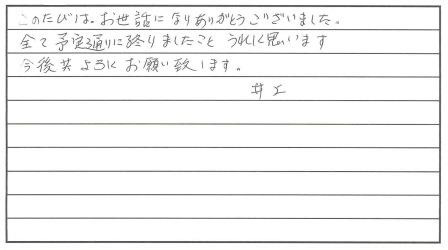 このたびは。お世話になりありがとうございました。
全て予定通りに終りましたこと うれしく思います
今後共よろしくお願い致します。
井工